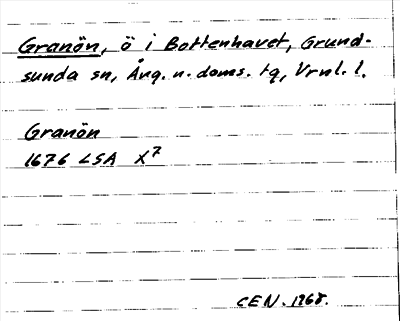 Granön, ö i Bottenhavet, Grund-
sunda sn, Ång. n. doms. tg, Vrnl. l.
Granön
1676 LSA X7
CEN. 1968.